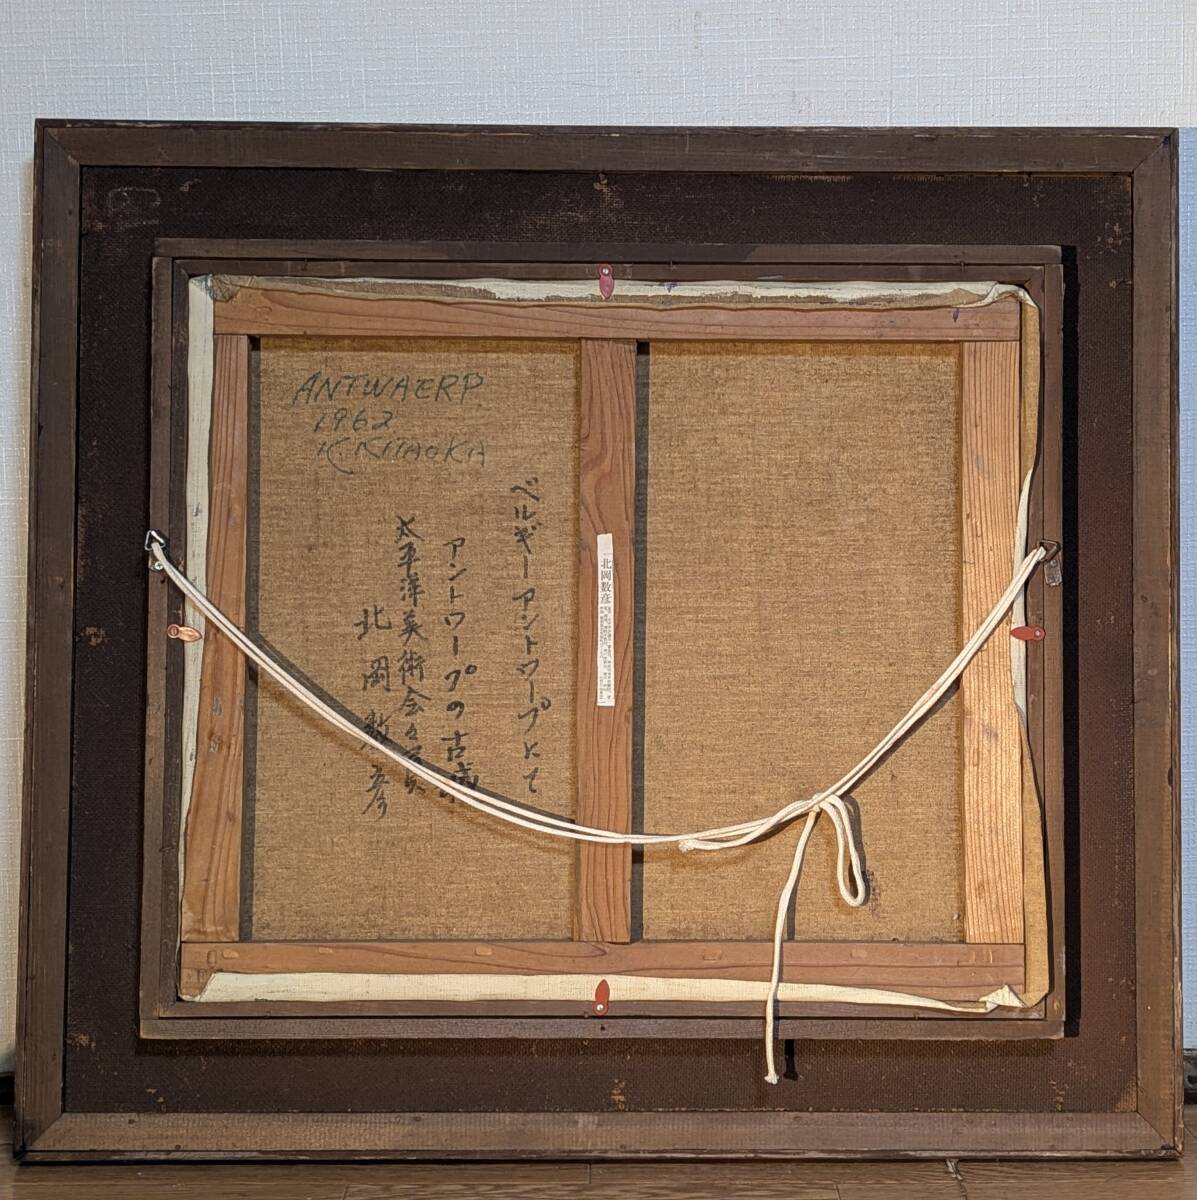 ANTWAERP
1962
K. KITAOKA
ベルギーアントワープにて
アントワープの古城
太平洋美術会々員
北岡数彦
北岡数彦